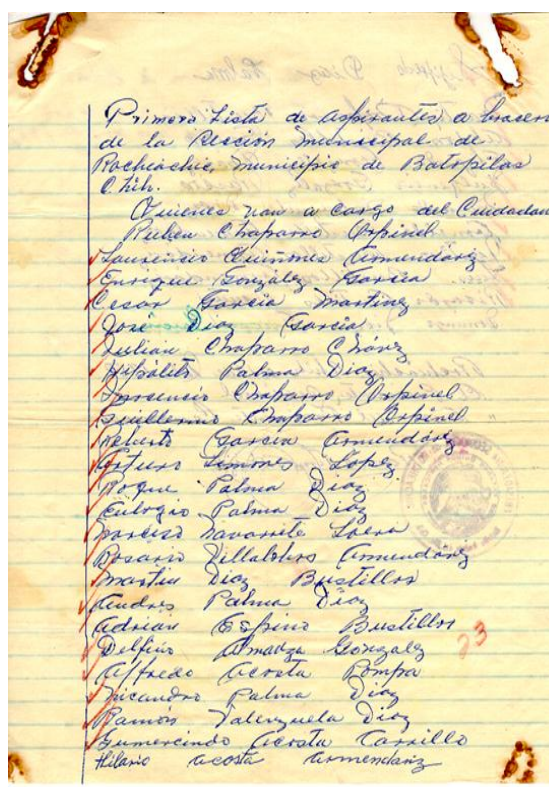 Primera Lista de aspirantes a braceros
de la Sección Municipal de
Rocheachic, Municipio de Batopilas
Chih.
Quienes van a cargo del Ciudadano
Ruben Chaparro Orpinel
Laurencio Quiñones Armendáriz
Enrique González Garcia
Cesar Garcia Martinez
José Diaz Garcia
Julian Chaparro Chávez
Hipólito Palma Diaz
Chaparro Orpinel
Guillermo Chaparro Orpinel
Roberto Garcia Armendáriz
Arturo Simones Lopez
Roque Palma Diaz
Eulogio Palma Diaz
Narciso Navarrete Loera
Rosario Villalobos Armendáriz
Martin Diaz Bustillos
Andres Palma Diaz
Adrian Espino Bustillos
Delfino Almadza Gonzalez
Alfredo Acosta Pompa
Nicandro Palma Diaz
Ramón Valenzuela Diaz
Gumercindo Acosta Carrillo
Hilario Acosta Armendariz
23